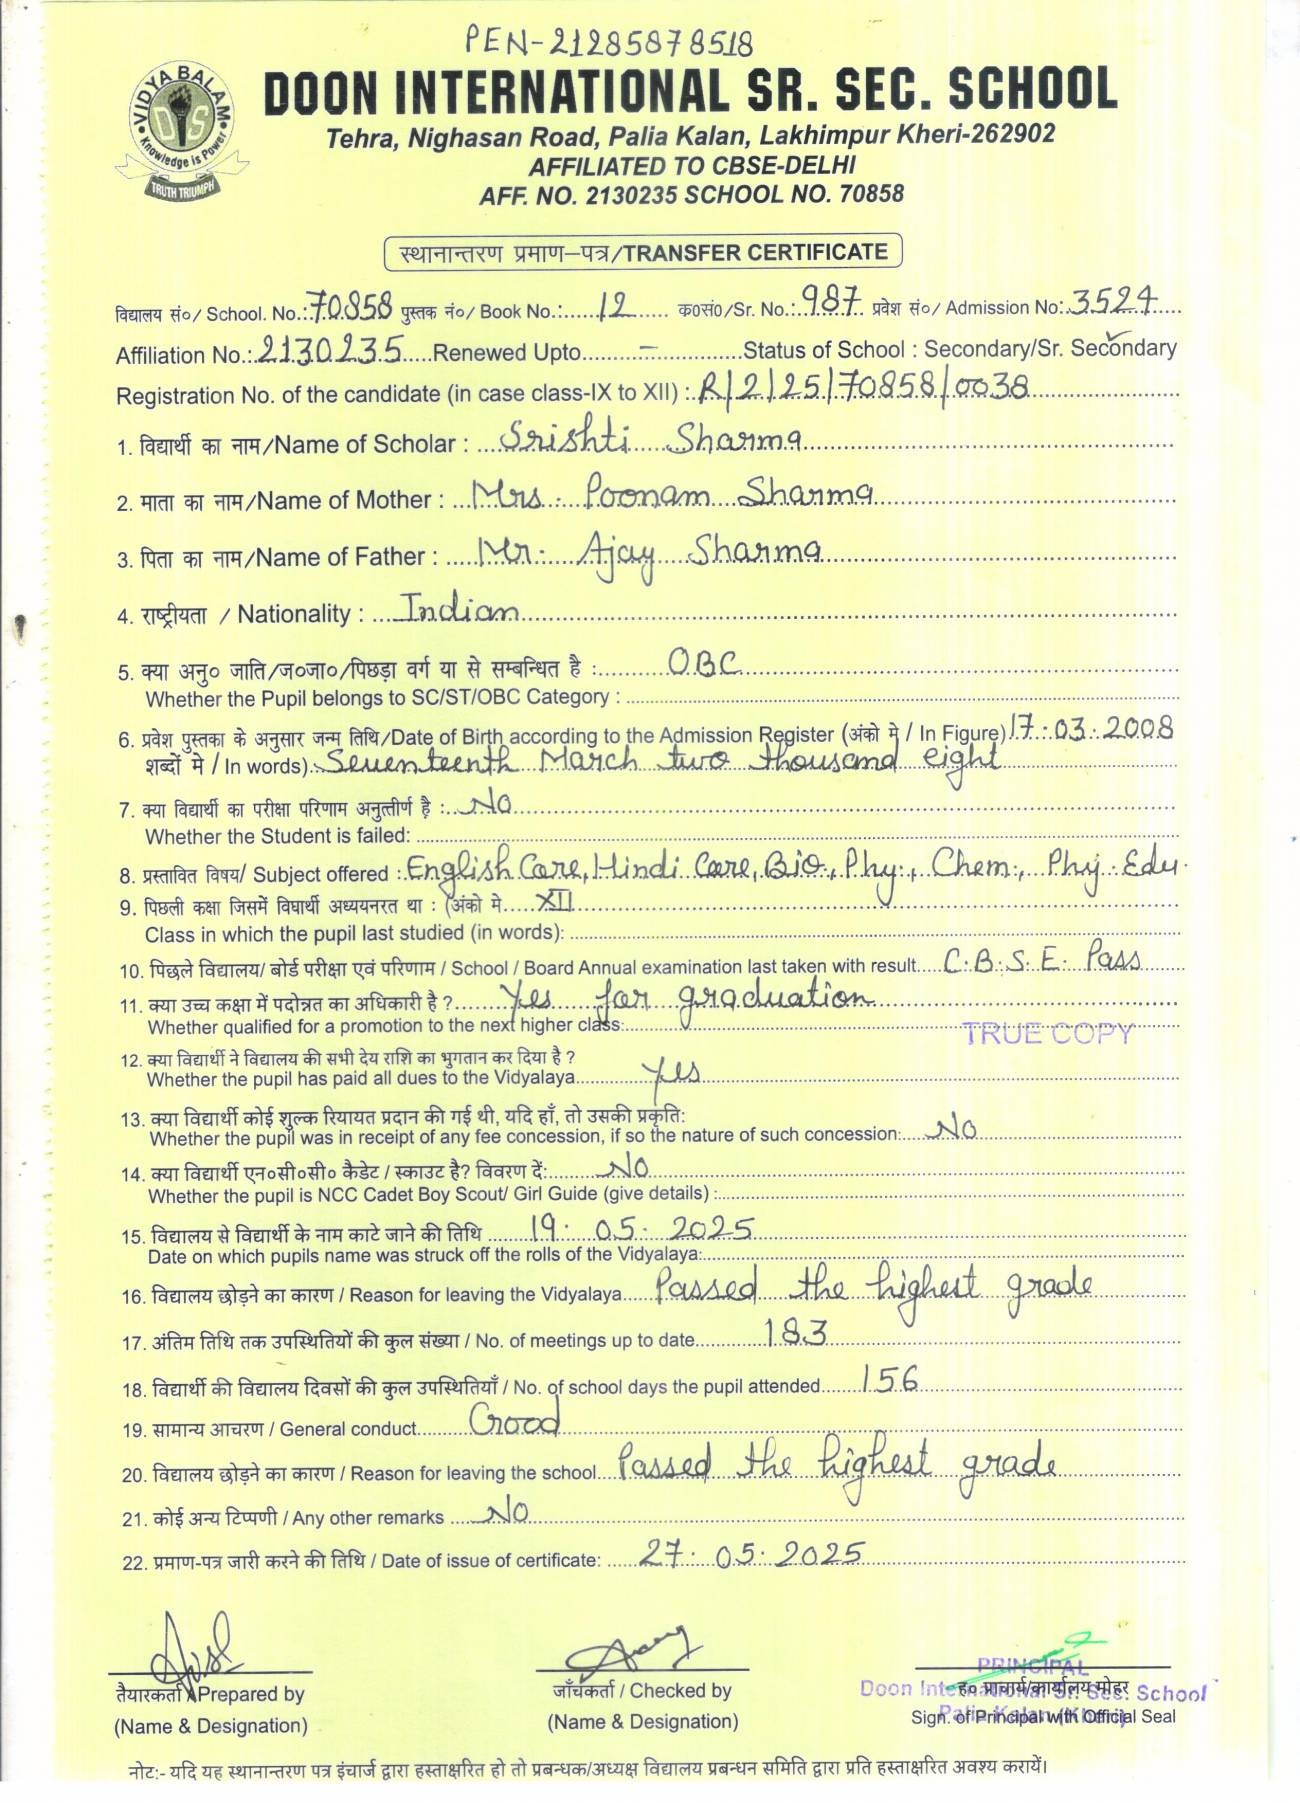 PEN-21285878518
VIDYA BALAM
DIS
Knowledge is Power
TRUTH TRIUMPH
DOON INTERNATIONAL SR. SEC. SCHOOL
Tehra, Nighasan Road, Palia Kalan, Lakhimpur Kheri-262902
AFFILIATED TO CBSE-DELHI
AFF. NO. 2130235 SCHOOL NO. 70858
स्थानान्तरण प्रमाण–पत्र/TRANSFER CERTIFICATE
विद्यालय सं०/ School. No.:70858 पुस्तक नं०/ Book No.:.....12...... क०सं०/Sr. No.:.987. प्रवेश सं०/ Admission No:.3524....
Affiliation No.:.2130235....Renewed Upto.........–...............Status of School : Secondary/Sr. Secondary ✓
Registration No. of the candidate (in case class-IX to XII) :.R/2/25/70858/0038
1. विद्यार्थी का नाम/Name of Scholar : ....Srishti Sharma
2. माता का नाम/Name of Mother : ...Mrs. Poonam Sharma
3. पिता का नाम/Name of Father : .....Mr. Ajay Sharma
4. राष्ट्रीयता / Nationality : ....Indian
5. क्या अनु० जाति/ज०जा०/पिछड़ा वर्ग या से सम्बन्धित है :...........OBC
Whether the Pupil belongs to SC/ST/OBC Category :
6. प्रवेश पुस्तका के अनुसार जन्म तिथि/Date of Birth according to the Admission Register (अंको मे / In Figure) 17.03.2008
शब्दों मे / In words).Seventeenth March two thousand eight
7. क्या विद्यार्थी का परीक्षा परिणाम अनुत्तीर्ण है :...No
Whether the Student is failed:
8. प्रस्तावित विषय/ Subject offered :English Core, Hindi Core, Bio., Phy., Chem., Phy. Edu.
9. पिछली कक्षा जिसमें विघार्थी अध्ययनरत था : (अंको मे.....XII
Class in which the pupil last studied (in words):
10. पिछले विद्यालय/ बोर्ड परीक्षा एवं परिणाम / School / Board Annual examination last taken with result....C.B.S.E. Pass
11. क्या उच्च कक्षा में पदोन्नत का अधिकारी है ?.......Yes for graduation
Whether qualified for a promotion to the next higher class:
TRUE COPY
12. क्या विद्यार्थी ने विद्यालय की सभी देय राशि का भुगतान कर दिया है ?
Whether the pupil has paid all dues to the Vidyalaya............Yes
13. क्या विद्यार्थी कोई शुल्क रियायत प्रदान की गई थी, यदि हाँ, तो उसकी प्रकृति:
Whether the pupil was in receipt of any fee concession, if so the nature of such concession:....No
14. क्या विद्यार्थी एन०सी०सी० कैडेट / स्काउट है? विवरण दें:.........No
Whether the pupil is NCC Cadet Boy Scout/ Girl Guide (give details) :
15. विद्यालय से विद्यार्थी के नाम काटे जाने की तिथि ........19. 05. 2025
Date on which pupils name was struck off the rolls of the Vidyalaya:
16. विद्यालय छोड़ने का कारण / Reason for leaving the Vidyalaya.....Passed the highest grade
17. अंतिम तिथि तक उपस्थितियों की कुल संख्या / No. of meetings up to date............183
18. विद्यार्थी की विद्यालय दिवसों की कुल उपस्थितियाँ / No. of school days the pupil attended.......156
19. सामान्य आचरण / General conduct.........Good
20. विद्यालय छोड़ने का कारण / Reason for leaving the school...Passed the highest grade
21. कोई अन्य टिप्पणी / Any other remarks .....No
22. प्रमाण-पत्र जारी करने की तिथि / Date of issue of certificate: .....27. 05. 2025
PRINCIPAL
Doon International Sr. Sec. School
Palia Kalan (Kheri)
तैयारकर्ता / Prepared by
जाँचकर्ता / Checked by
ह० प्राचार्य/कार्यालय मोहर
(Name & Designation)
(Name & Designation)
Sign. of Principal with Official Seal
नोट:- यदि यह स्थानान्तरण पत्र इंचार्ज द्वारा हस्ताक्षरित हो तो प्रबन्धक/अध्यक्ष विद्यालय प्रबन्धन समिति द्वारा प्रति हस्ताक्षरित अवश्य करायें।